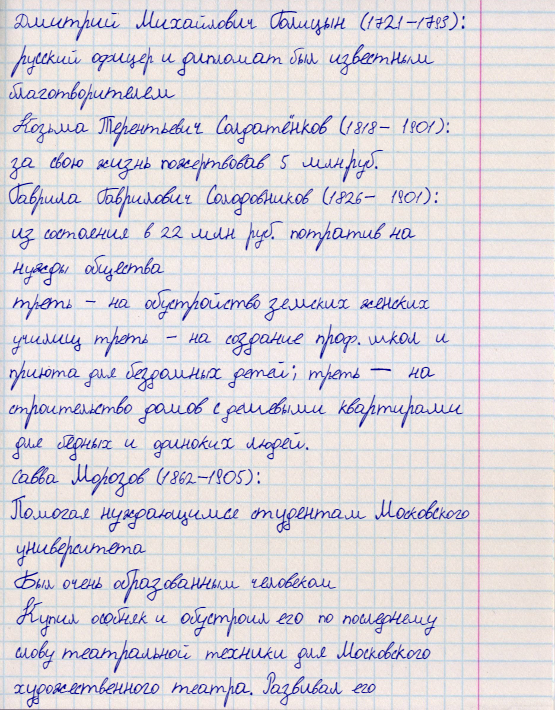 Дмитрий Михайлович Голицын (1721–1793):
русский офицер и дипломат был известным
благотворителем
Козьма Терентьевич Солдатёнков (1818– 1901):
за свою жизнь пожертвовав 5 млн.руб.
Гаврила Гаврилович Солодовников (1826– 1901):
из состояния в 22 млн руб. потратив на
нужды общества
треть – на обустройство земских женских
училищ треть – на создание проф. школ и
приюта для бездомных детей; треть — на
строительство домов с дешевыми квартирами
для бедных и одиноких людей.
Савва Морозов (1862–1905):
Помогал нуждающимся студентам Московского
университета
Был очень образованным человеком
Купил особняк и обустроил его по последнему
слову театральной техники для Московского
художественного театра. Развивал его